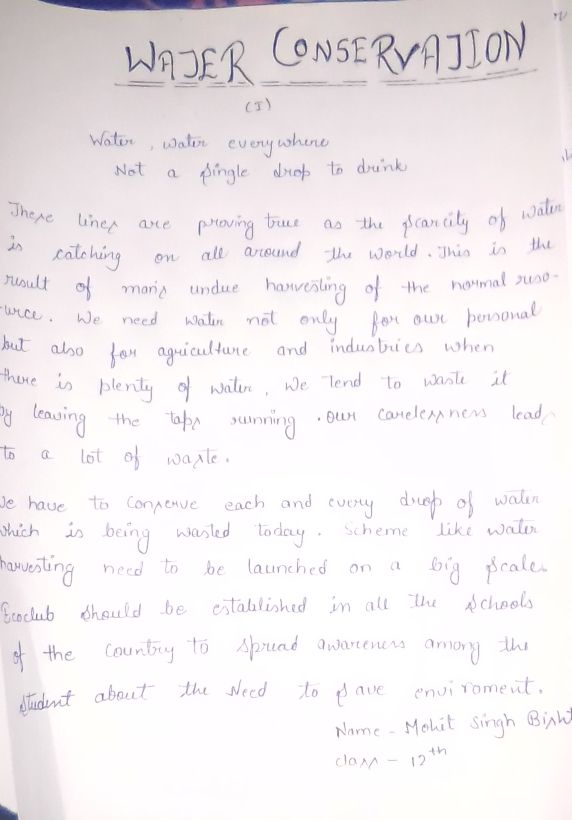 WATER CONSERVATION
(I)
Water, water everywhere
Not a single drop to drink
These lines are proving true as the scarcity of water
is catching on all around the world. This is the
result of man's undue harvesting of the normal reso-
urce. We need water not only for our personal
but also for agriculture and industries when
there is plenty of water, we tend to waste it
by leaving the taps running. our carelessness leads
to a lot of waste.
We have to conserve each and every drop of water
which is being wasted today. Scheme like water
harvesting need to be launched on a big scale.
Ecoclub should be established in all the schools
of the country to spread awareness among the
student about the Need to save enviroment.
Name - Mohit Singh Bisht
class - 12th